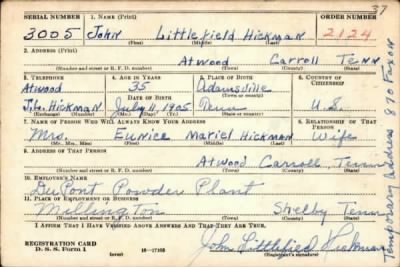 37
SERIAL NUMBER 1. NAME (Print) ORDER NUMBER
3005 John Littlefield Hickman 2124
(First) (Middle) (Last)
2. ADDRESS (Print)
Atwood Carroll Tenn
(Number and street or R. F. D. number) (Town) (County) (State)
3. TELEPHONE 4. AGE IN YEARS 5. PLACE OF BIRTH 6. COUNTRY OF CITIZENSHIP
Atwood 35 Adamsville
DATE OF BIRTH (Town or county)
J.L. Hickman July 11, 1905 Tenn U.S.
(Exchange) (Number) (Mo.) (Day) (Yr.) (State or country)
7. NAME OF PERSON WHO WILL ALWAYS KNOW YOUR ADDRESS 8. RELATIONSHIP OF THAT PERSON
Mrs. Eunice Mariel Hickman Wife
(Mr., Mrs., Miss) (First) (Middle) (Last)
9. ADDRESS OF THAT PERSON
Atwood Carroll, Tenn
(Number and street or R. F. D. number) (Town) (County) (State)
10. EMPLOYER'S NAME
DuPont Powder Plant
11. PLACE OF EMPLOYMENT OR BUSINESS
Millington Shelby Tenn
(Number and street or R. F. D. number) (Town) (County) (State)
I AFFIRM THAT I HAVE VERIFIED ABOVE ANSWERS AND THAT THEY ARE TRUE.
REGISTRATION CARD
D. S. S. Form 1 (over) 16—17105 John Littlefield Hickman
Temporary address 870 Faxon